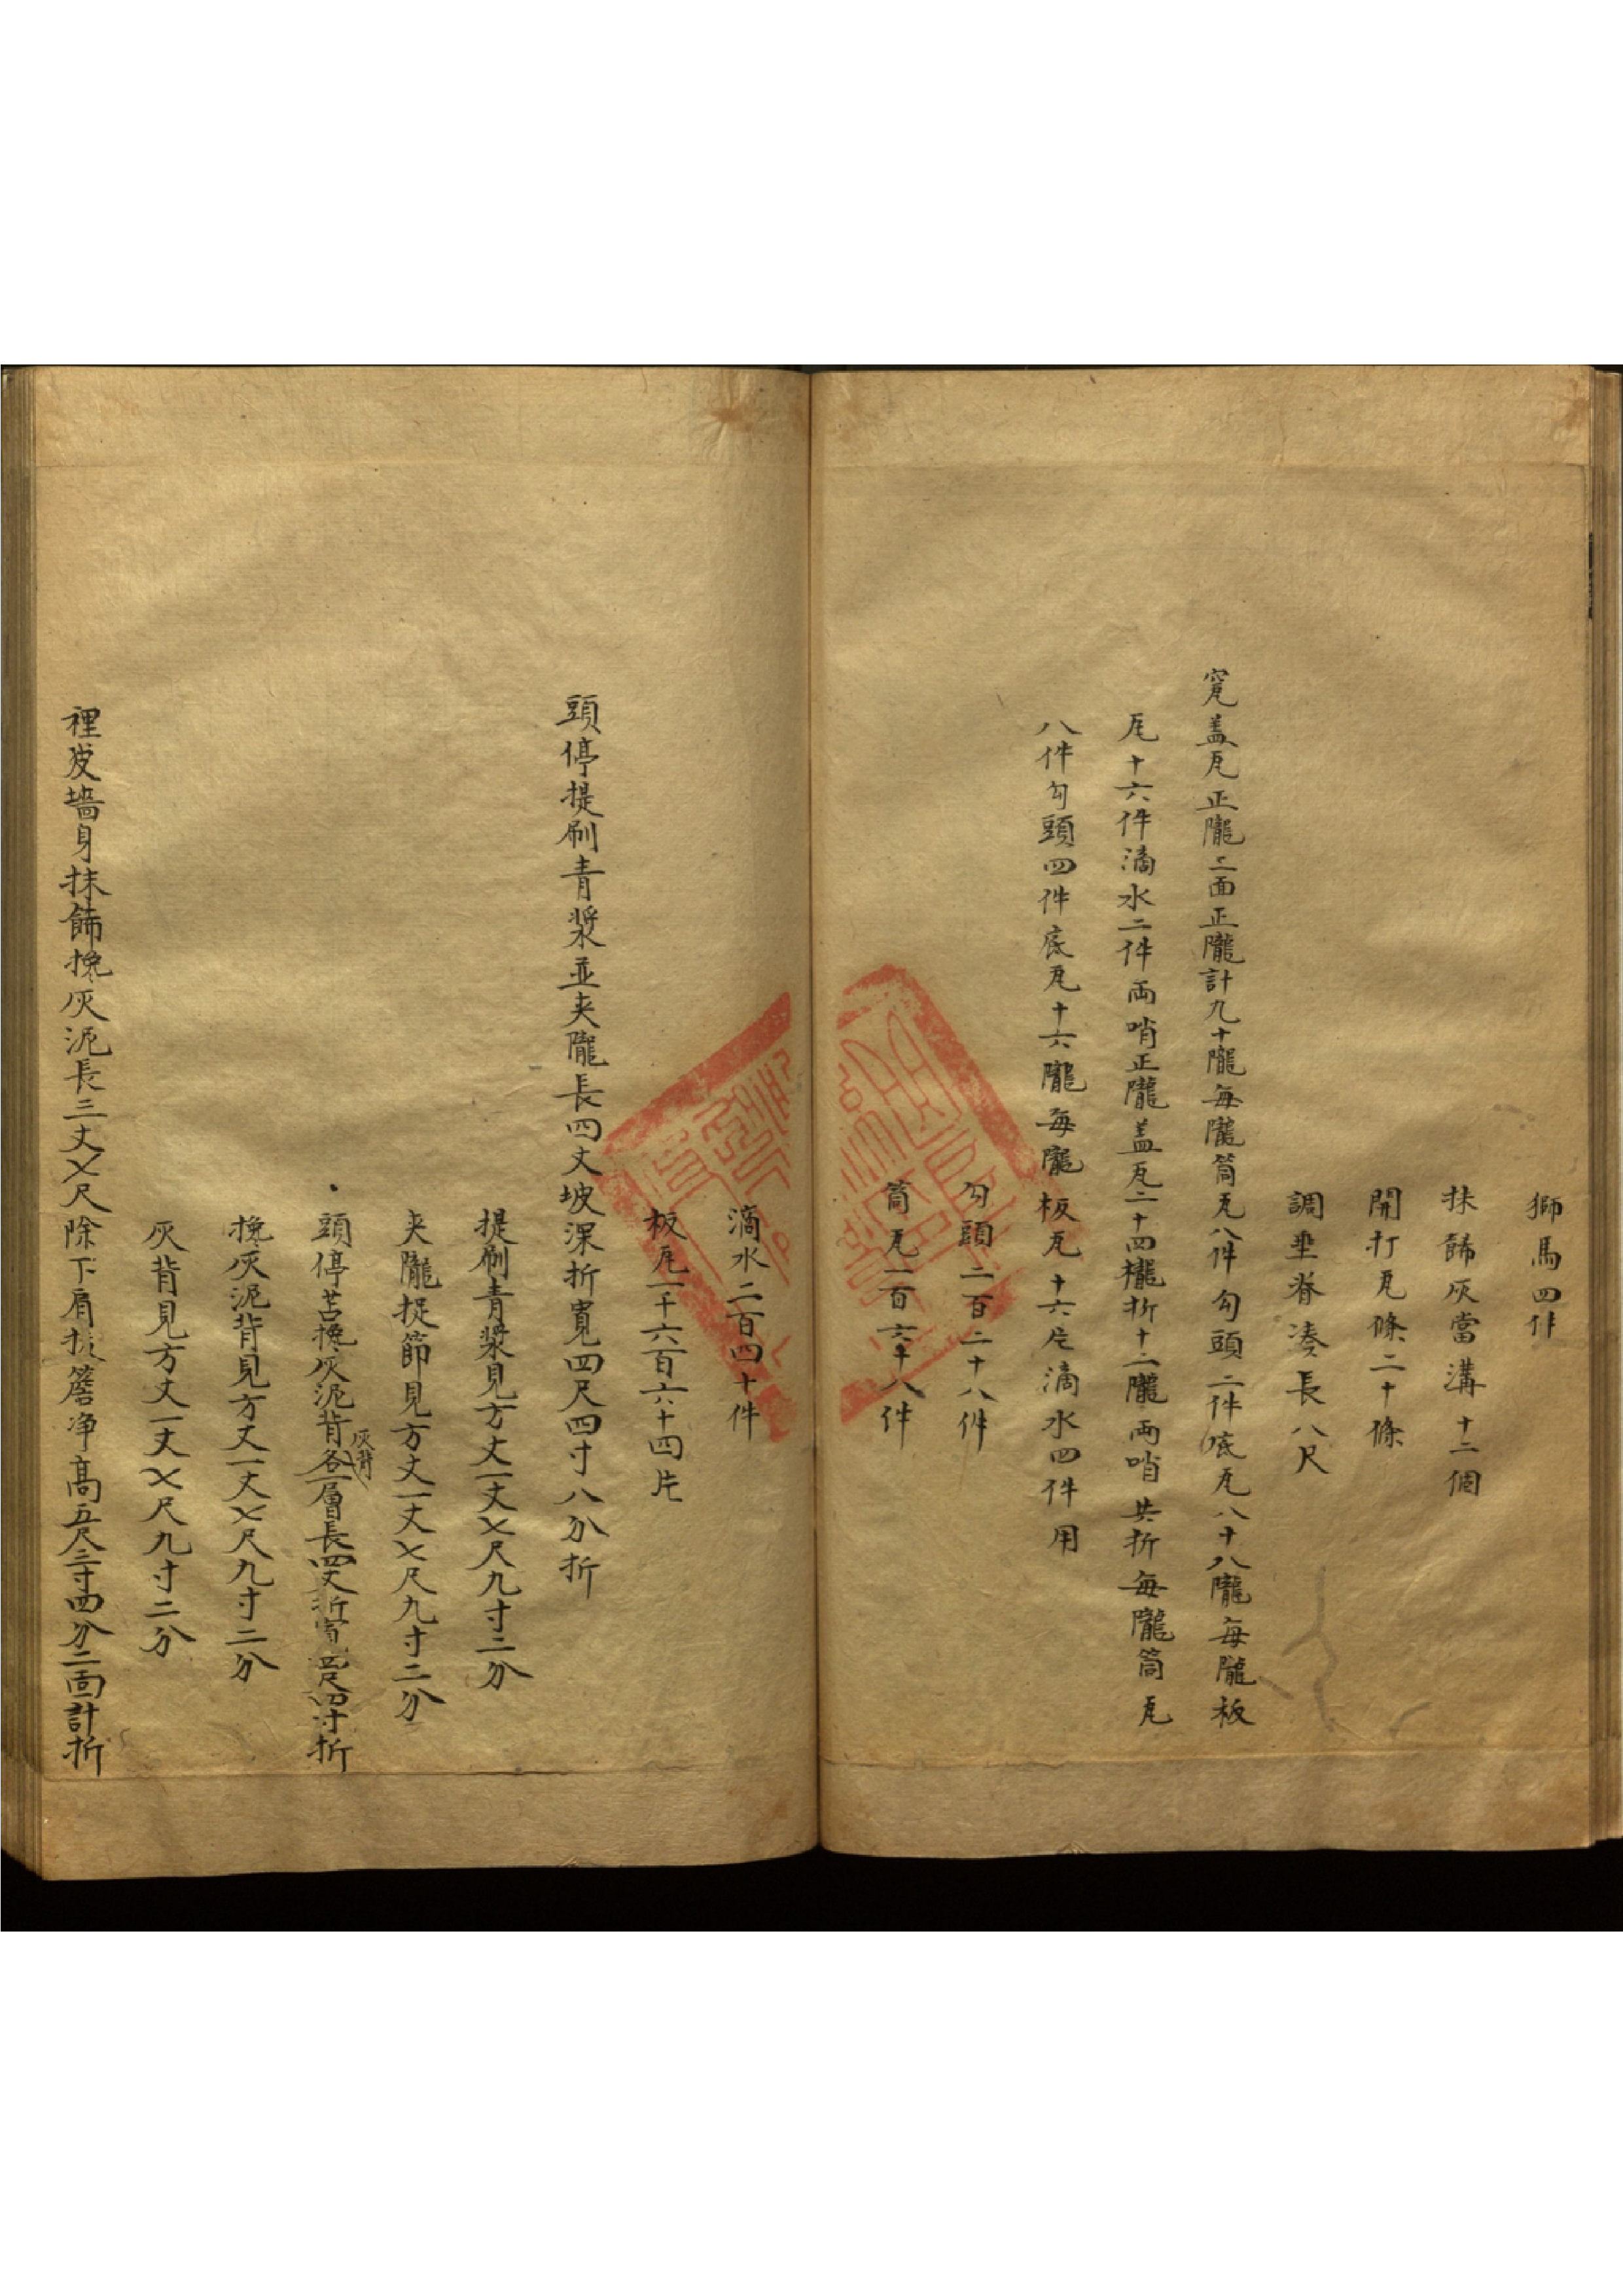 獅馬四件
抹餙灰當溝十二個
開打瓦條二十條
調垂脊凑長八尺
窊盖瓦正隴二面正隴計九十隴每隴筒瓦八件勾頭二件底瓦八十八隴每隴板
瓦十六件滴水二件両哨正隴盖瓦二十四櫳折十二隴両哨共折每隴筒瓦
八件勾頭四件底瓦十六隴每隴板瓦十六片滴水四件用
勾頭二百二十八件
筒瓦一百六十八件
滴水二百四十件
板瓦一千六百六十四片
頭停提刷青漿並夾隴長四丈坡深折寬四尺四寸八分折
提刷青漿見方丈一丈〤尺九寸二分
夾隴捉節見方丈一丈〤尺九寸二分
頭停苫搀灰泥背灰背各一層長四丈折寬四尺四寸折
搀灰泥背見方丈一丈〤尺九寸二分
灰背見方丈一丈〤尺九寸二分
裡皮墻身抹餙搀灰泥長三丈〤尺除下肩拔簷净高五尺三寸四分二面計折